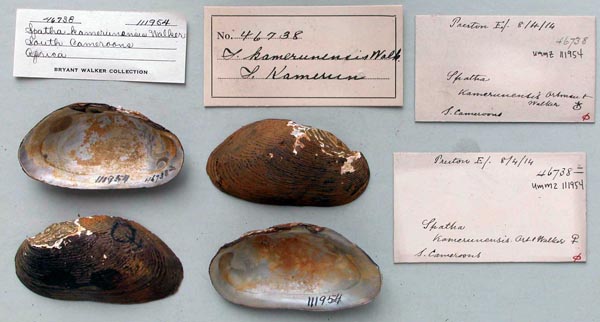 46738 111954
Spatha kamerunensis Walker
South Cameroons
Africa
BRYANT WALKER COLLECTION
No. 46738
S. kamerunensis Walk.
S. Kamerun
Preston Ex. 8/4/14
46738
UMMZ 111954
Spatha
kamerunensis Ortman &
Walker
S. Cameroons
Preston Ex. 8/4/14
46738
UMMZ 111954
Spatha
kamerunensis Ort & Walker ♀
S. Cameroons
111954 46738
♀
111954